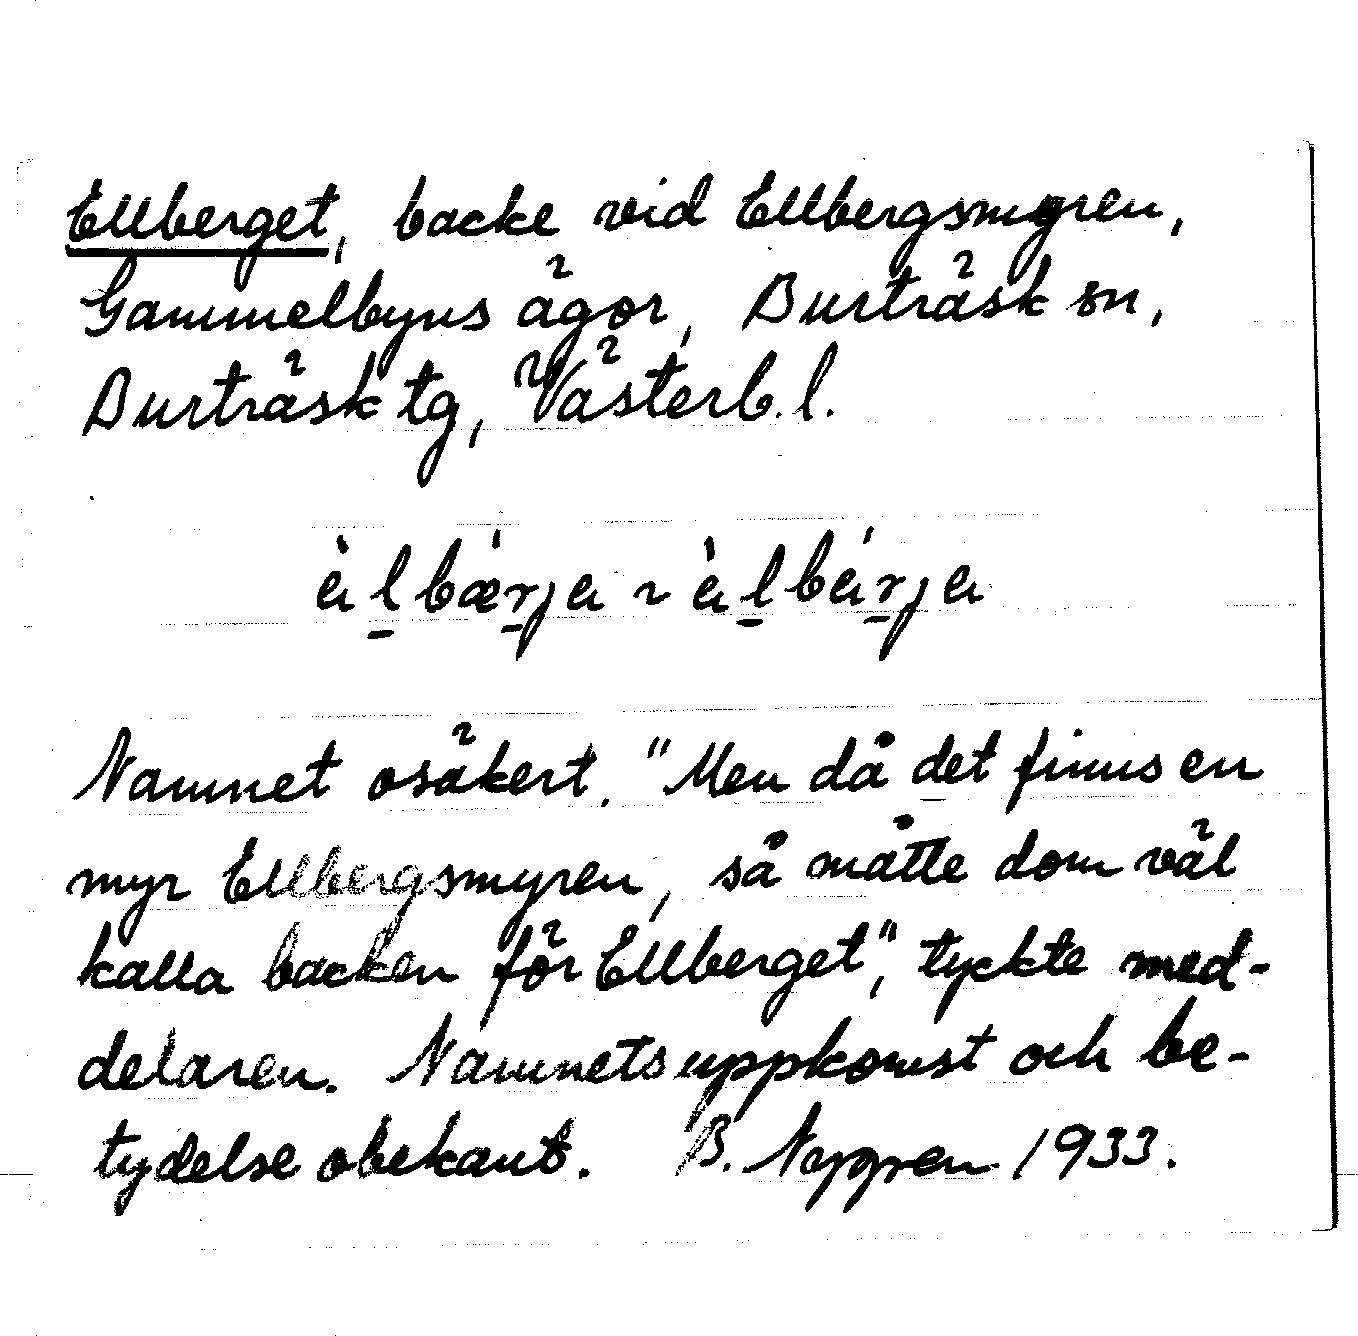 Ellberget, backe vid Ellbergsmyren,
Gammelbyns ägor, Burträsk sn,
Burträsk tg, Västerb. l.
Namnet osäkert. "Men då det finns en
myr Ellbergsmyren, så måtte dom väl
kalla backen för Ellberget", tyckte med-
delaren. Namnets uppkomst och be-
tydelse obekant. B. Nygren 1933.